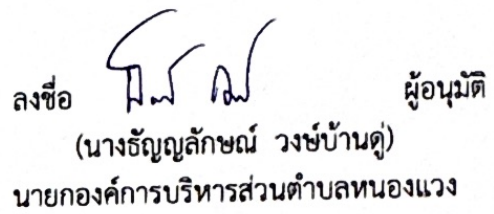 ลงชื่อ ผู้อนุมัติ
(นางธัญญลักษณ์ วงษ์บ้านดู่)
นายกองค์การบริหารส่วนตำบลหนองแวง